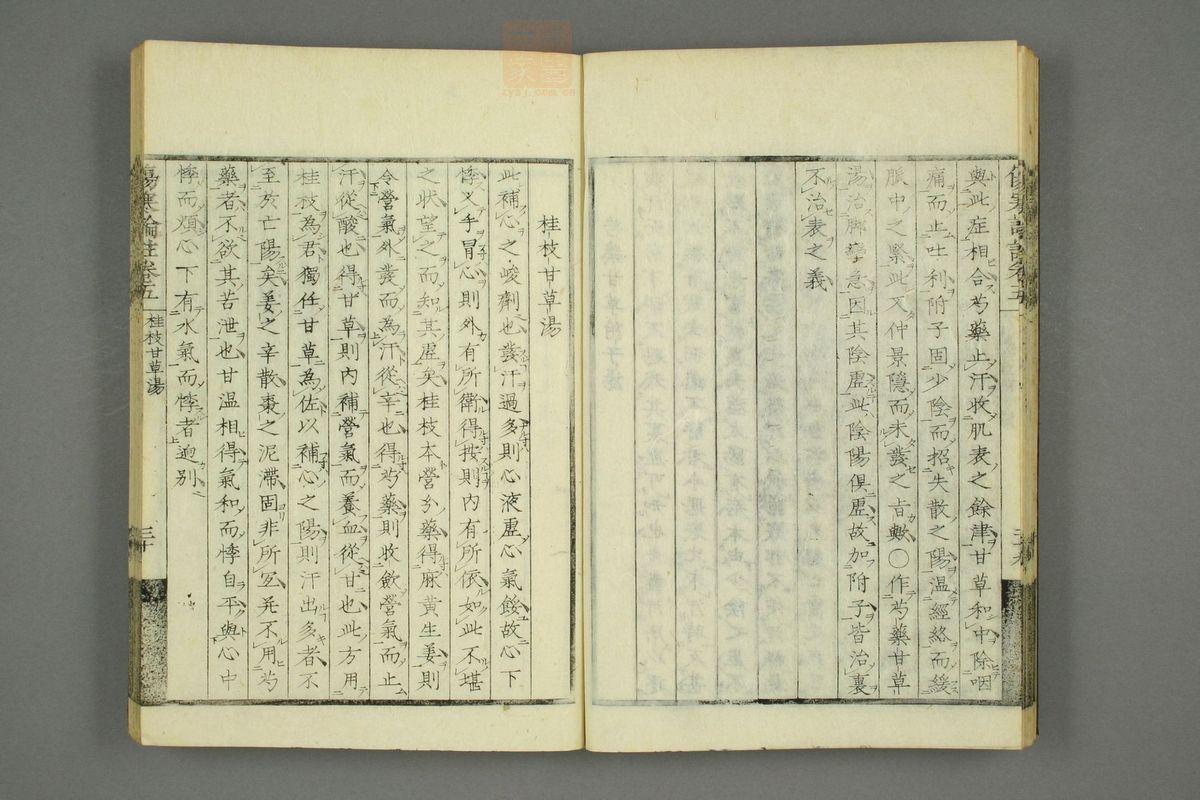 與此症相合芍藥止汗收肌表之餘津甘草和中除咽
痛而止吐利附子固少陰而招失散之陽温經絡而緩
脈中之緊此又仲景隱而未發之旨歟○作芍藥甘草
湯治脚攣急因其陰虛此陰陽俱虛故加附子皆治裏
不治表之義
桂枝甘草湯
此補心之峻劑也發汗過多則心液虛心氣餒故心下
悸叉手冒心則外有所衛得按則內有所依如此不堪
之狀望之而知其虛矣桂枝本營分藥得麻黄生姜則
令營氣外發而為汗從辛也得芍藥則收歛營氣而止
汗從酸也得甘草則內補營氣而養血從甘也此方用
桂枝為君獨任甘草為佐以補心之陽則汗出多者不
至於亡陽矣姜之辛散棗之泥滯固非所宜并不用芍
藥者不欲其苦泄也甘温相得氣和而悸自平與心中
悸而煩心下有水氣而悸者逈別
傷寒論註卷五
桂枝甘草湯
三十
zysj.com.cn